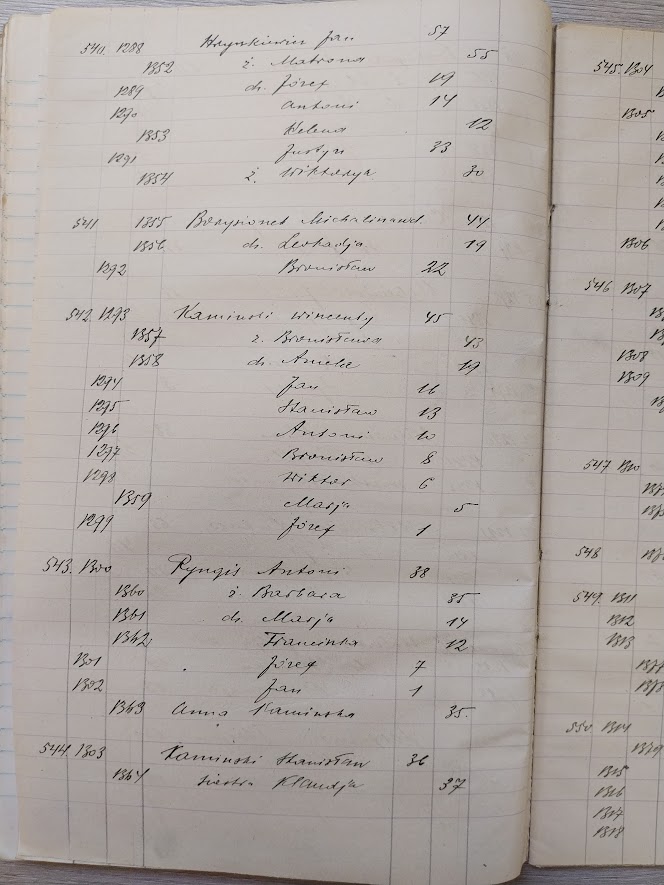 540. 1288 Hrynkiewicz Jan 57
1352 ż. Matrona 55
1289 dz. Józef 19
1290 Antoni 14
1353 Helena 12
1291 Justyn 33
1354 ż. Wiktorya 30
541 1355 Michalinawd 44
1356 dz. Leokadja 19
1292 Bronisław 22
542. 1293 Kaminski Wincenty 45
1357 ż. Bronisława 43
1358 dz. Aniela 19
1294 Jan 16
1295 Stanisław 13
1296 Antoni 10
1297 Bronisław 8
1298 Wiktor 6
1359 Marja 5
1299 Józef 1
543. 1300 Ryngis Antoni 38
1360 ż. Barbara 35
1361 dz. Marja 14
1362 Francinka 12
1301 Józef 7
1302 Jan 1
1363 Anna Kaminska 35.
544. 1303 Kaminski Stanisław 36
1364 siostra Klaudja 37
545. 1304
1305
1306
546 1307
1308
1309
547 1310
548
549. 1311
1312
1313
550 1314
1315
1316
1317
1318